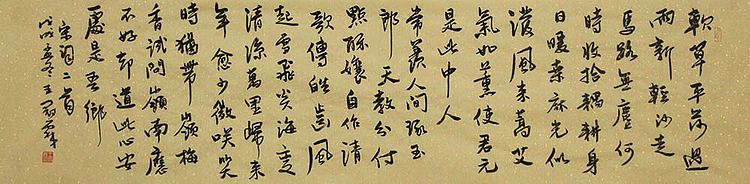 軟草平莎過
雨新輕沙走
馬路無塵何
時收拾耦耕身
日暖桑麻光似
潑風來蒿艾
氣如薰使君元
是此中人
常羨人間琢玉
郎天教分付
點酥孃自作清
歌傳皓齒風
起雪飛炎海變
清涼萬里歸來
年愈少微笑笑
時猶帶嶺梅
香試問嶺南應
不好却道此心安
處是吾鄉
宋詞二首
戊戌冬王